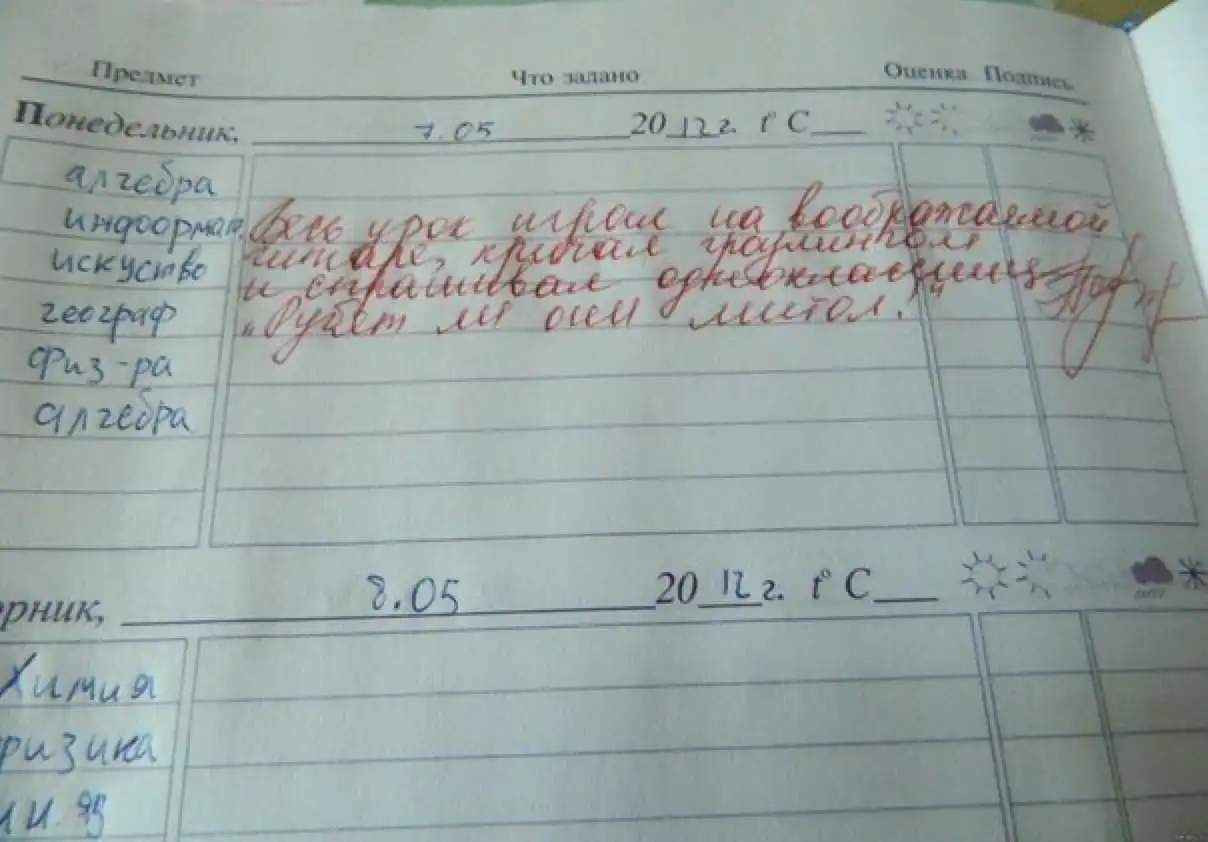 Предмет Что задано Оценка Подпись
Понедельник, 7.05 2012 г. t°C
алгебра
информат. Весь урок играл на воображаемой
гитаре, кричал гроулингом
искуство и спрашивал одноклассниц
географ „Рубят ли они митол!"
Физ-ра
алгебра
орник, 8.05 2012 г. t°C
Химия
физика
ин. яз